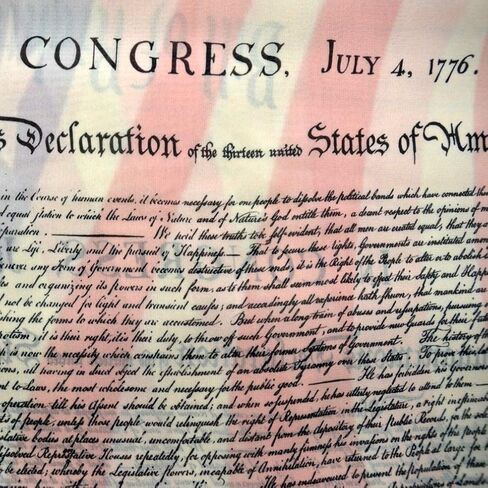 CONGRESS, JULY 4, 1776.
s Declaration of the thirteen united States of Am
in the Course of human events, it becomes necessary for one people to dissolve the political bands which have connected them
d equal station to which the Laws of Nature and of Nature's God entitle them, a decent respect to the opinions of m
paration. We hold these truths to be self-evident, that all men are created equal, that they a
are Life, Liberty and the pursuit of Happiness. — That to secure these rights, Governments are instituted among
never any Form of Government becomes destructive of these ends, it is the Right of the People to alter or to abolish i
les and organizing its powers in such form, as to them shall seem most likely to effect their Safety and Happin
d not be changed for light and transient causes; and accordingly all experience hath shewn, that mankind are
ishing the forms to which they are accustomed. But when a long train of abuses and usurpations, pursuing
potism, it is their right, it is their duty, to throw off such Government, and to provide new Guards for their futu
is now the necessity which constrains them to alter their former Systems of Government. The history of th
ions, all having in direct object the establishment of an absolute Tyranny over these States. To prove this
ent to Laws, the most wholesome and necessary for the public good. He has forbidden his Govern
operation till his Assent should be obtained; and when so suspended, he has utterly neglected to attend to them
ts of people, unless those people would relinquish the right of Representation in the Legislature, a right inestimable
slative bodies at places unusual, uncomfortable, and distant from the depository of their Public Records, for the sole
dissolved Representative Houses repeatedly, for opposing with manly firmness his invasions on the rights of the People
to be elected; whereby the Legislative powers, incapable of Annihilation, have returned to the People at large for
He has endeavoured to prevent the population of these